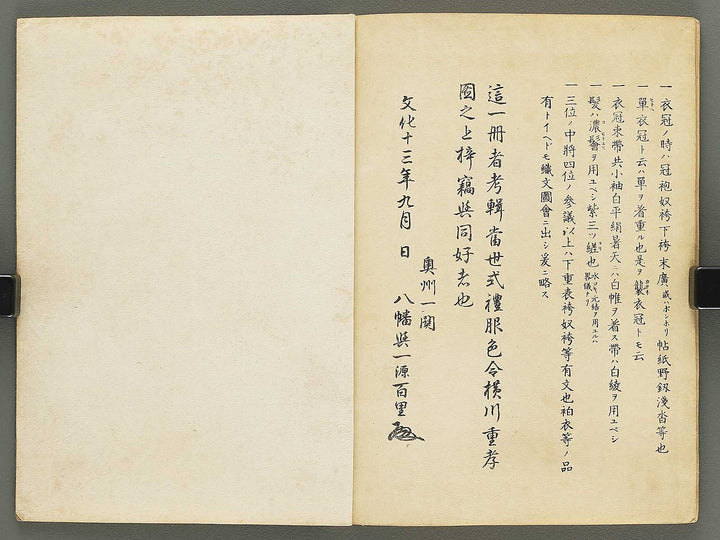 一衣冠ノ時ハ冠袍奴袴下袴末廣或ハボンボリ帖紙野釼浅沓等也
一單衣冠ト云ハ單ヲ着重ル也是ヲ襲衣冠トモ云
一衣冠束帶共小袖白平絹暑天ニハ白帷ヲ着ス帶ハ白綾ヲ用ユベシ
一髪ハ濃ヲ用ユベシ紫三ツ縒也水引元結ヲ用ユルハ畧儀ナリ
一三位ノ中將四位ノ參議以上ハ下重表袴奴袴等有文也袙衣等ノ品
有トイヘドモ織文圖會ニ出シ爰ニ略ス
這一冊者考輯當世式禮服色令横川重孝
圖之上梓竊與同好者也
文化十三年九月 日
奥州一関
八幡與一源百里